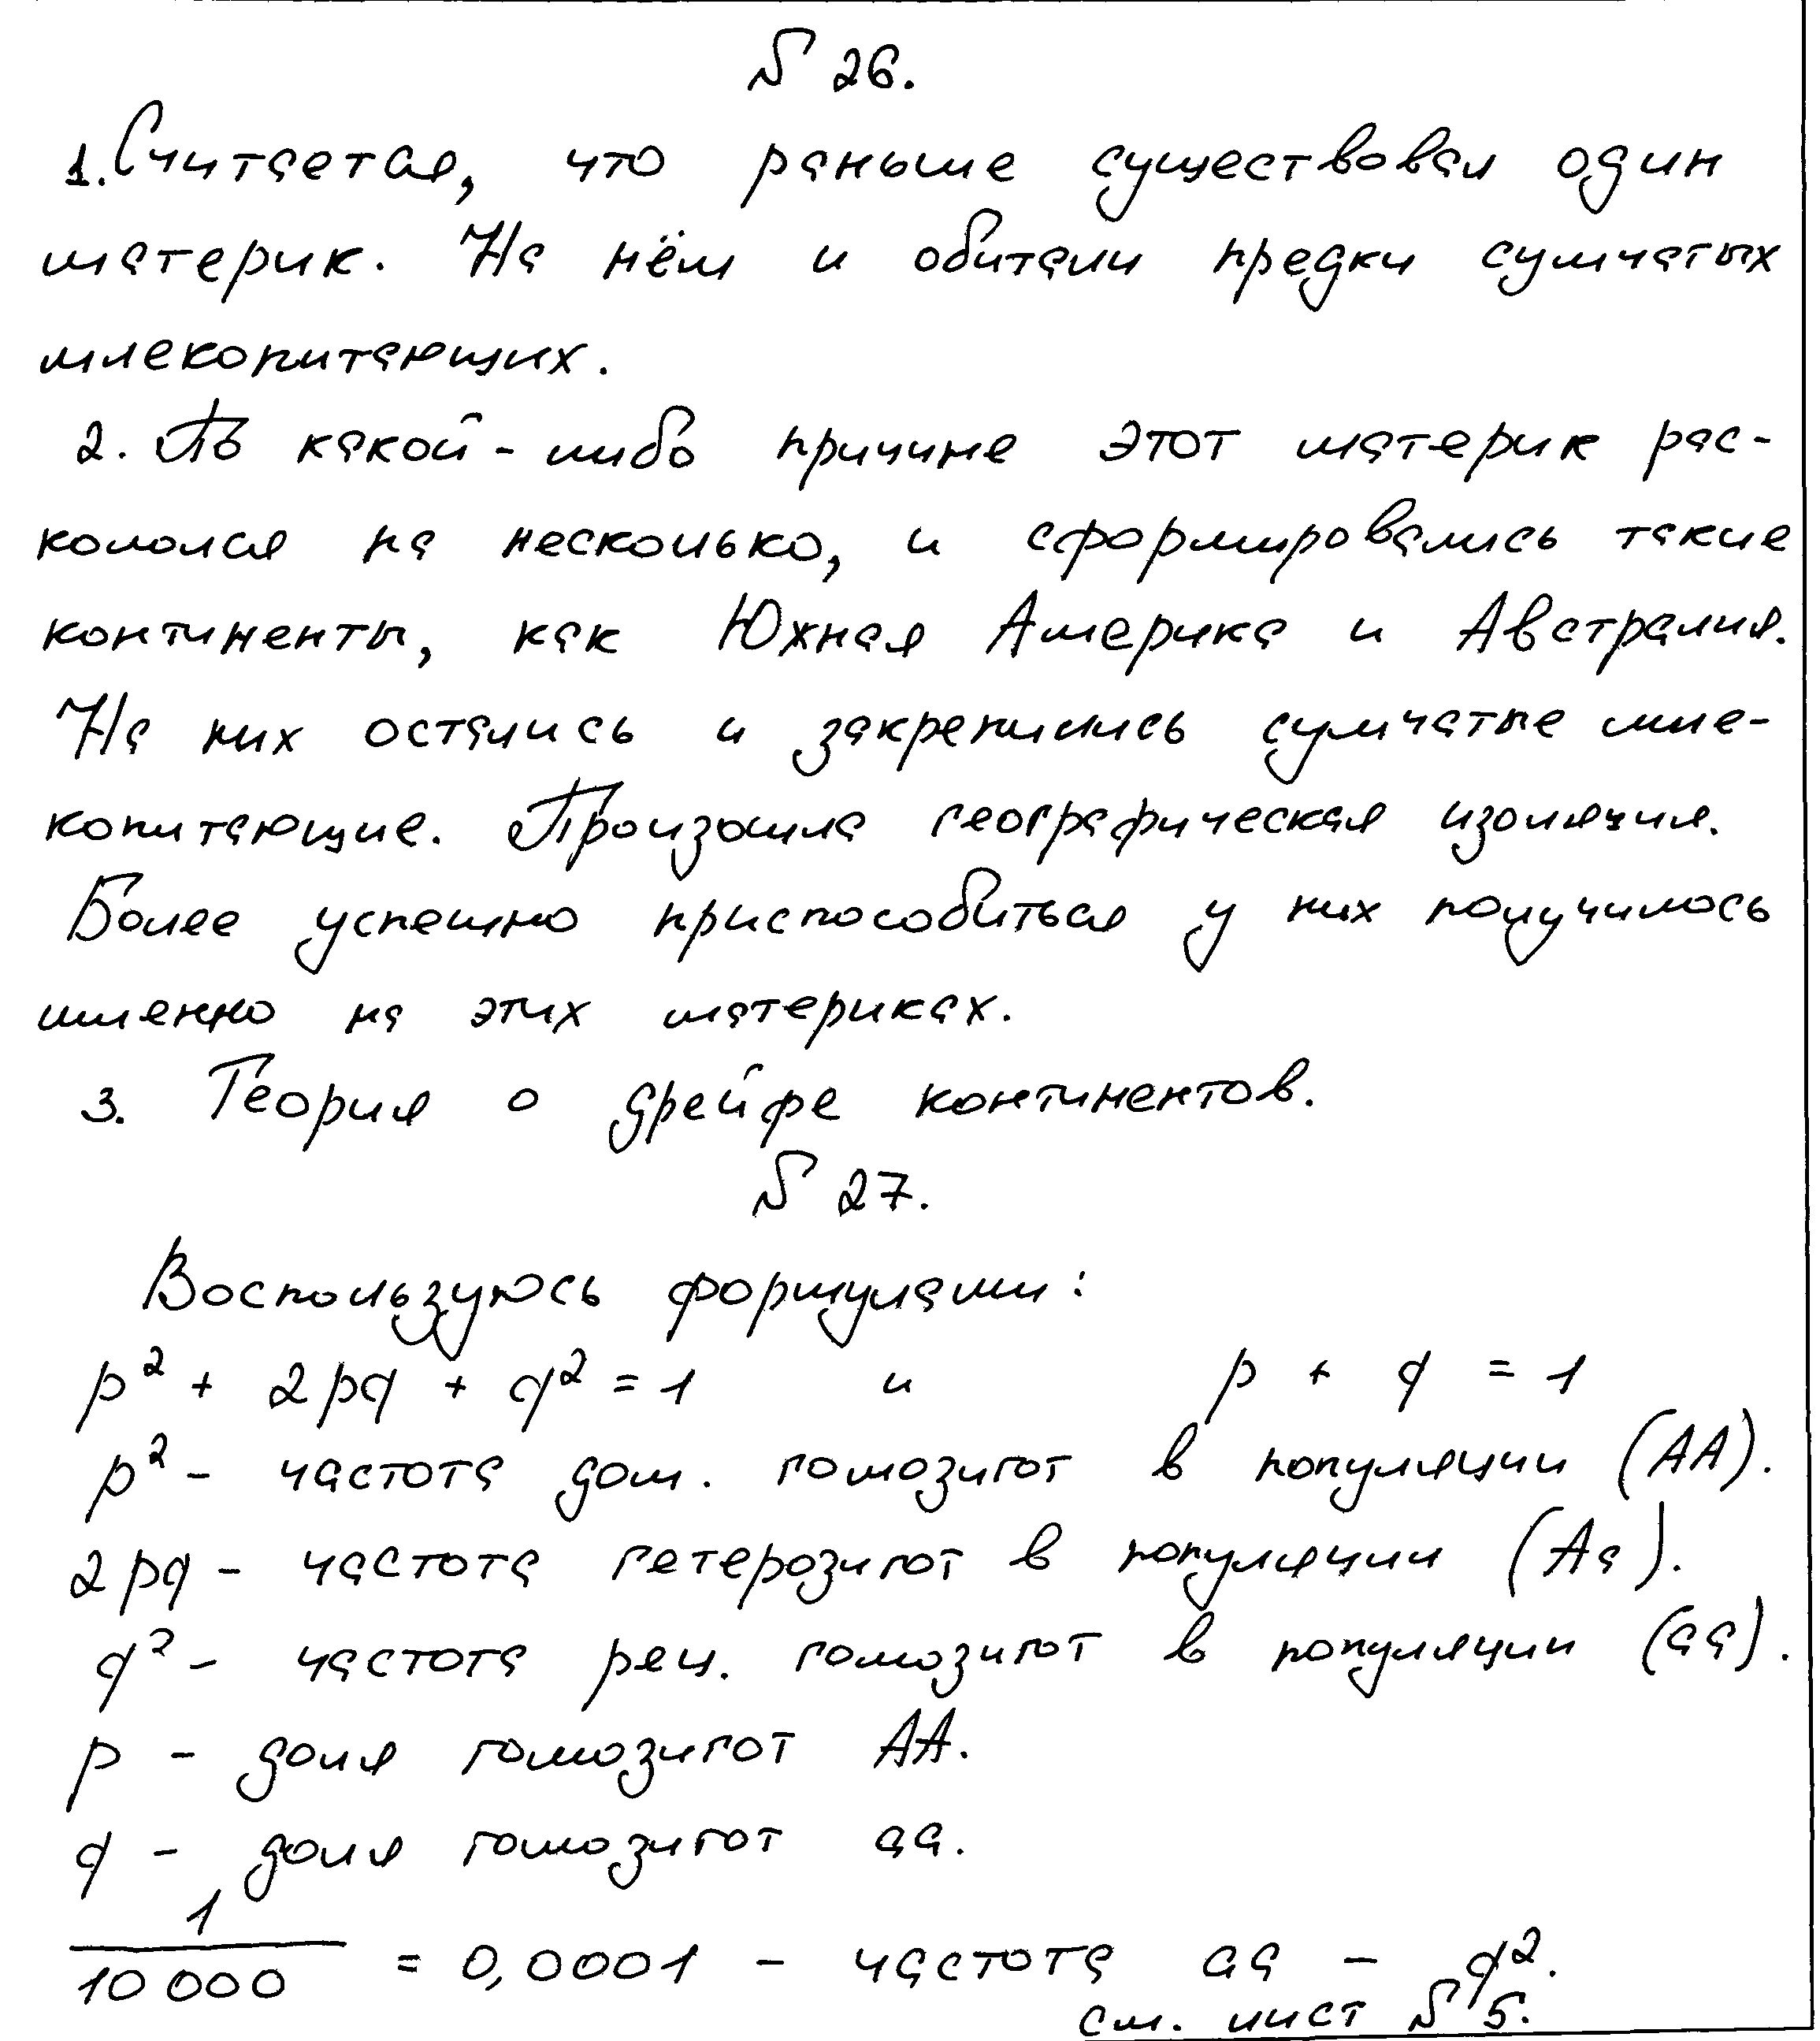 № 26.
1. Считается, что раньше существовал один
материк. На нём и обитали предки сумчатых
млекопитающих.
2. По какой-либо причине этот материк рас-
кололся на несколько, и сформировались такие
континенты, как Южная Америка и Австралия.
На них остались и закрепились сумчатые мле-
копитающие. Произошла географическая изоляция.
Более успешно приспособиться у них получилось
именно на этих материках.
3. Теория о дрейфе континентов.
№ 27.
Воспользуюсь формулами:
p² + 2pq + q² = 1 и p + q = 1
p² - частота дом. гомозигот в популяции (AA).
2pq - частота гетерозигот в популяции (Aa).
q² - частота рец. гомозигот в популяции (aa).
p - доля гомозигот AA.
q - доля гомозигот aa.
1
10 000 = 0,0001 - частота aa - q².
см. лист № 5.